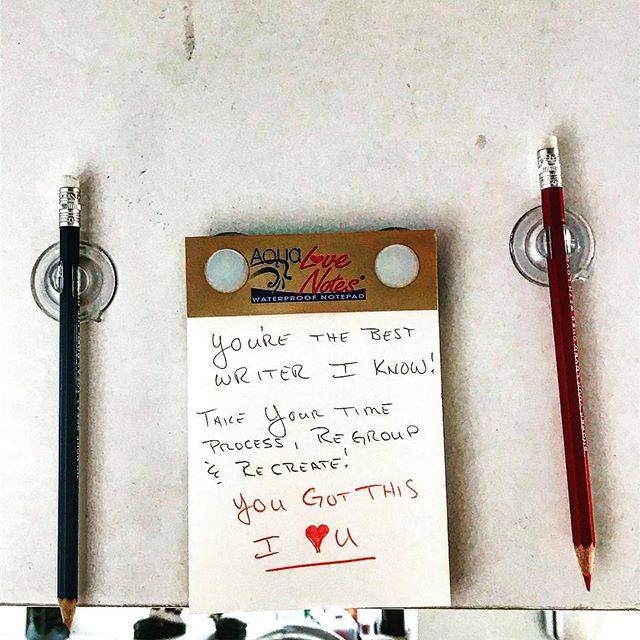 AQUA Love
Notes®
WATERPROOF NOTEPAD
YOU'RE THE BEST
WRITER I KNOW!
TAKE YOUR TIME
PROCESS, REGROUP
& RECREATE!
YOU GOT THIS
I ♥ U